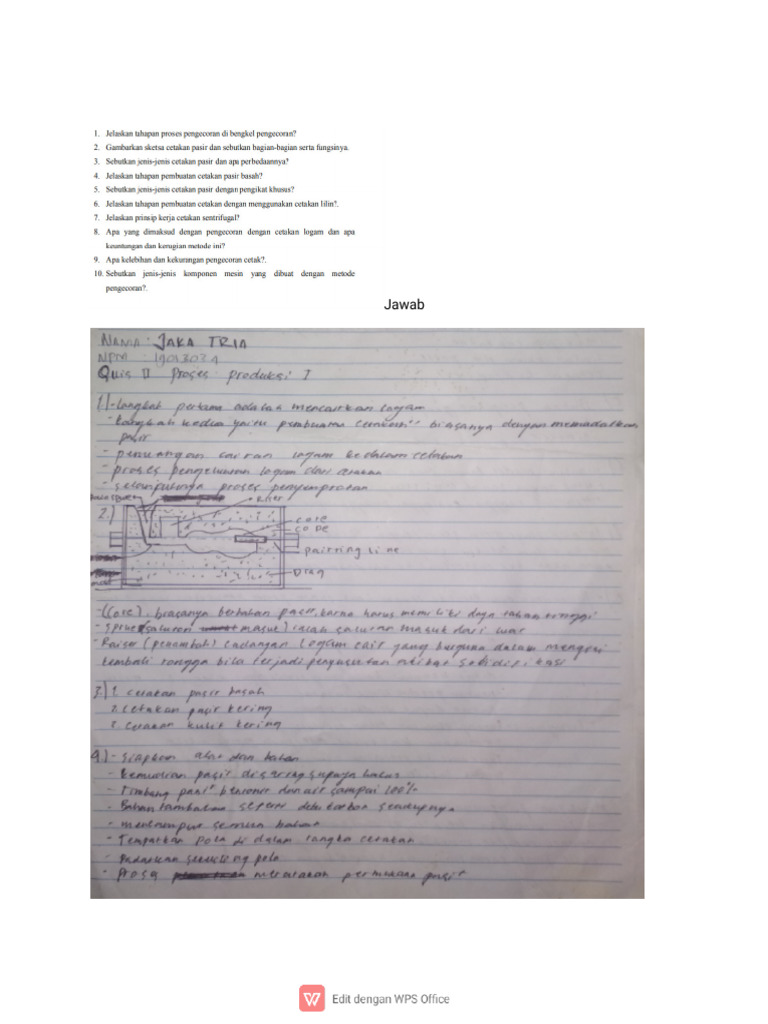 1. Jelaskan tahapan proses pengecoran di bengkel pengecoran?
2. Gambarkan sketsa cetakan pasir dan sebutkan bagian-bagian serta fungsinya.
3. Sebutkan jenis-jenis cetakan pasir dan apa perbedaannya?
4. Jelaskan tahapan pembuatan cetakan pasir basah?
5. Sebutkan jenis-jenis cetakan pasir dengan pengikat khusus?
6. Jelaskan tahapan pembuatan cetakan dengan menggunakan cetakan lilin?.
7. Jelaskan prinsip kerja cetakan sentrifugal?
8. Apa yang dimaksud dengan pengecoran dengan cetakan logam dan apa
keuntungan dan kerugian metode ini?
9. Apa kelebihan dan kekurangan pengecoran cetak?.
10. Sebutkan jenis-jenis komponen mesin yang dibuat dengan metode
pengecoran?.
Jawab
NAMA : JAKA TRIA
NPM :
Quis II Proses produksi I
1.) - Langkah pertama adalah mencairkan logam
- Langkah kedua yaitu pembuatan biasanya dengan memadatkan
pasir
- penuangan cairan logam kedalam cetakan
- proses pengeluaran logam dari cetakan
- selanjutnya proses penyemprotan
Riser
2.)
core
cope
pairring line
Drag
- (Core) biasanya berbahan pasir karna harus memiliki daya tahan tinggi
- Sprue (saluran masuk) ialah saluran masuk dari luar
- Raiser (penambah) cadangan logam cair yang berguna dalam mengisi
kembali rongga bila terjadi penyusutan akibat
3.) 1. cetakan pasir basah
2. cetakan pasir kering
3. cetakan kulit kering
4.) - Siapkan alat dan bahan
- Kemudian pasir disaring supaya halus
- Timbang pasir dan air sampai 100%
- Bahan tambahan seperti debu karbon
- mencampur semua bahan
- Tempatkan pola di dalam rangka cetakan
- Padatkan pola
- Proses meratakan permukaan pasir
Edit dengan WPS Office